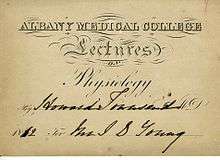 ALBANY MEDICAL COLLEGE
Lectures
ON
Physiology
By Howard Townsend M.D.
1862 for Mr. J S Young